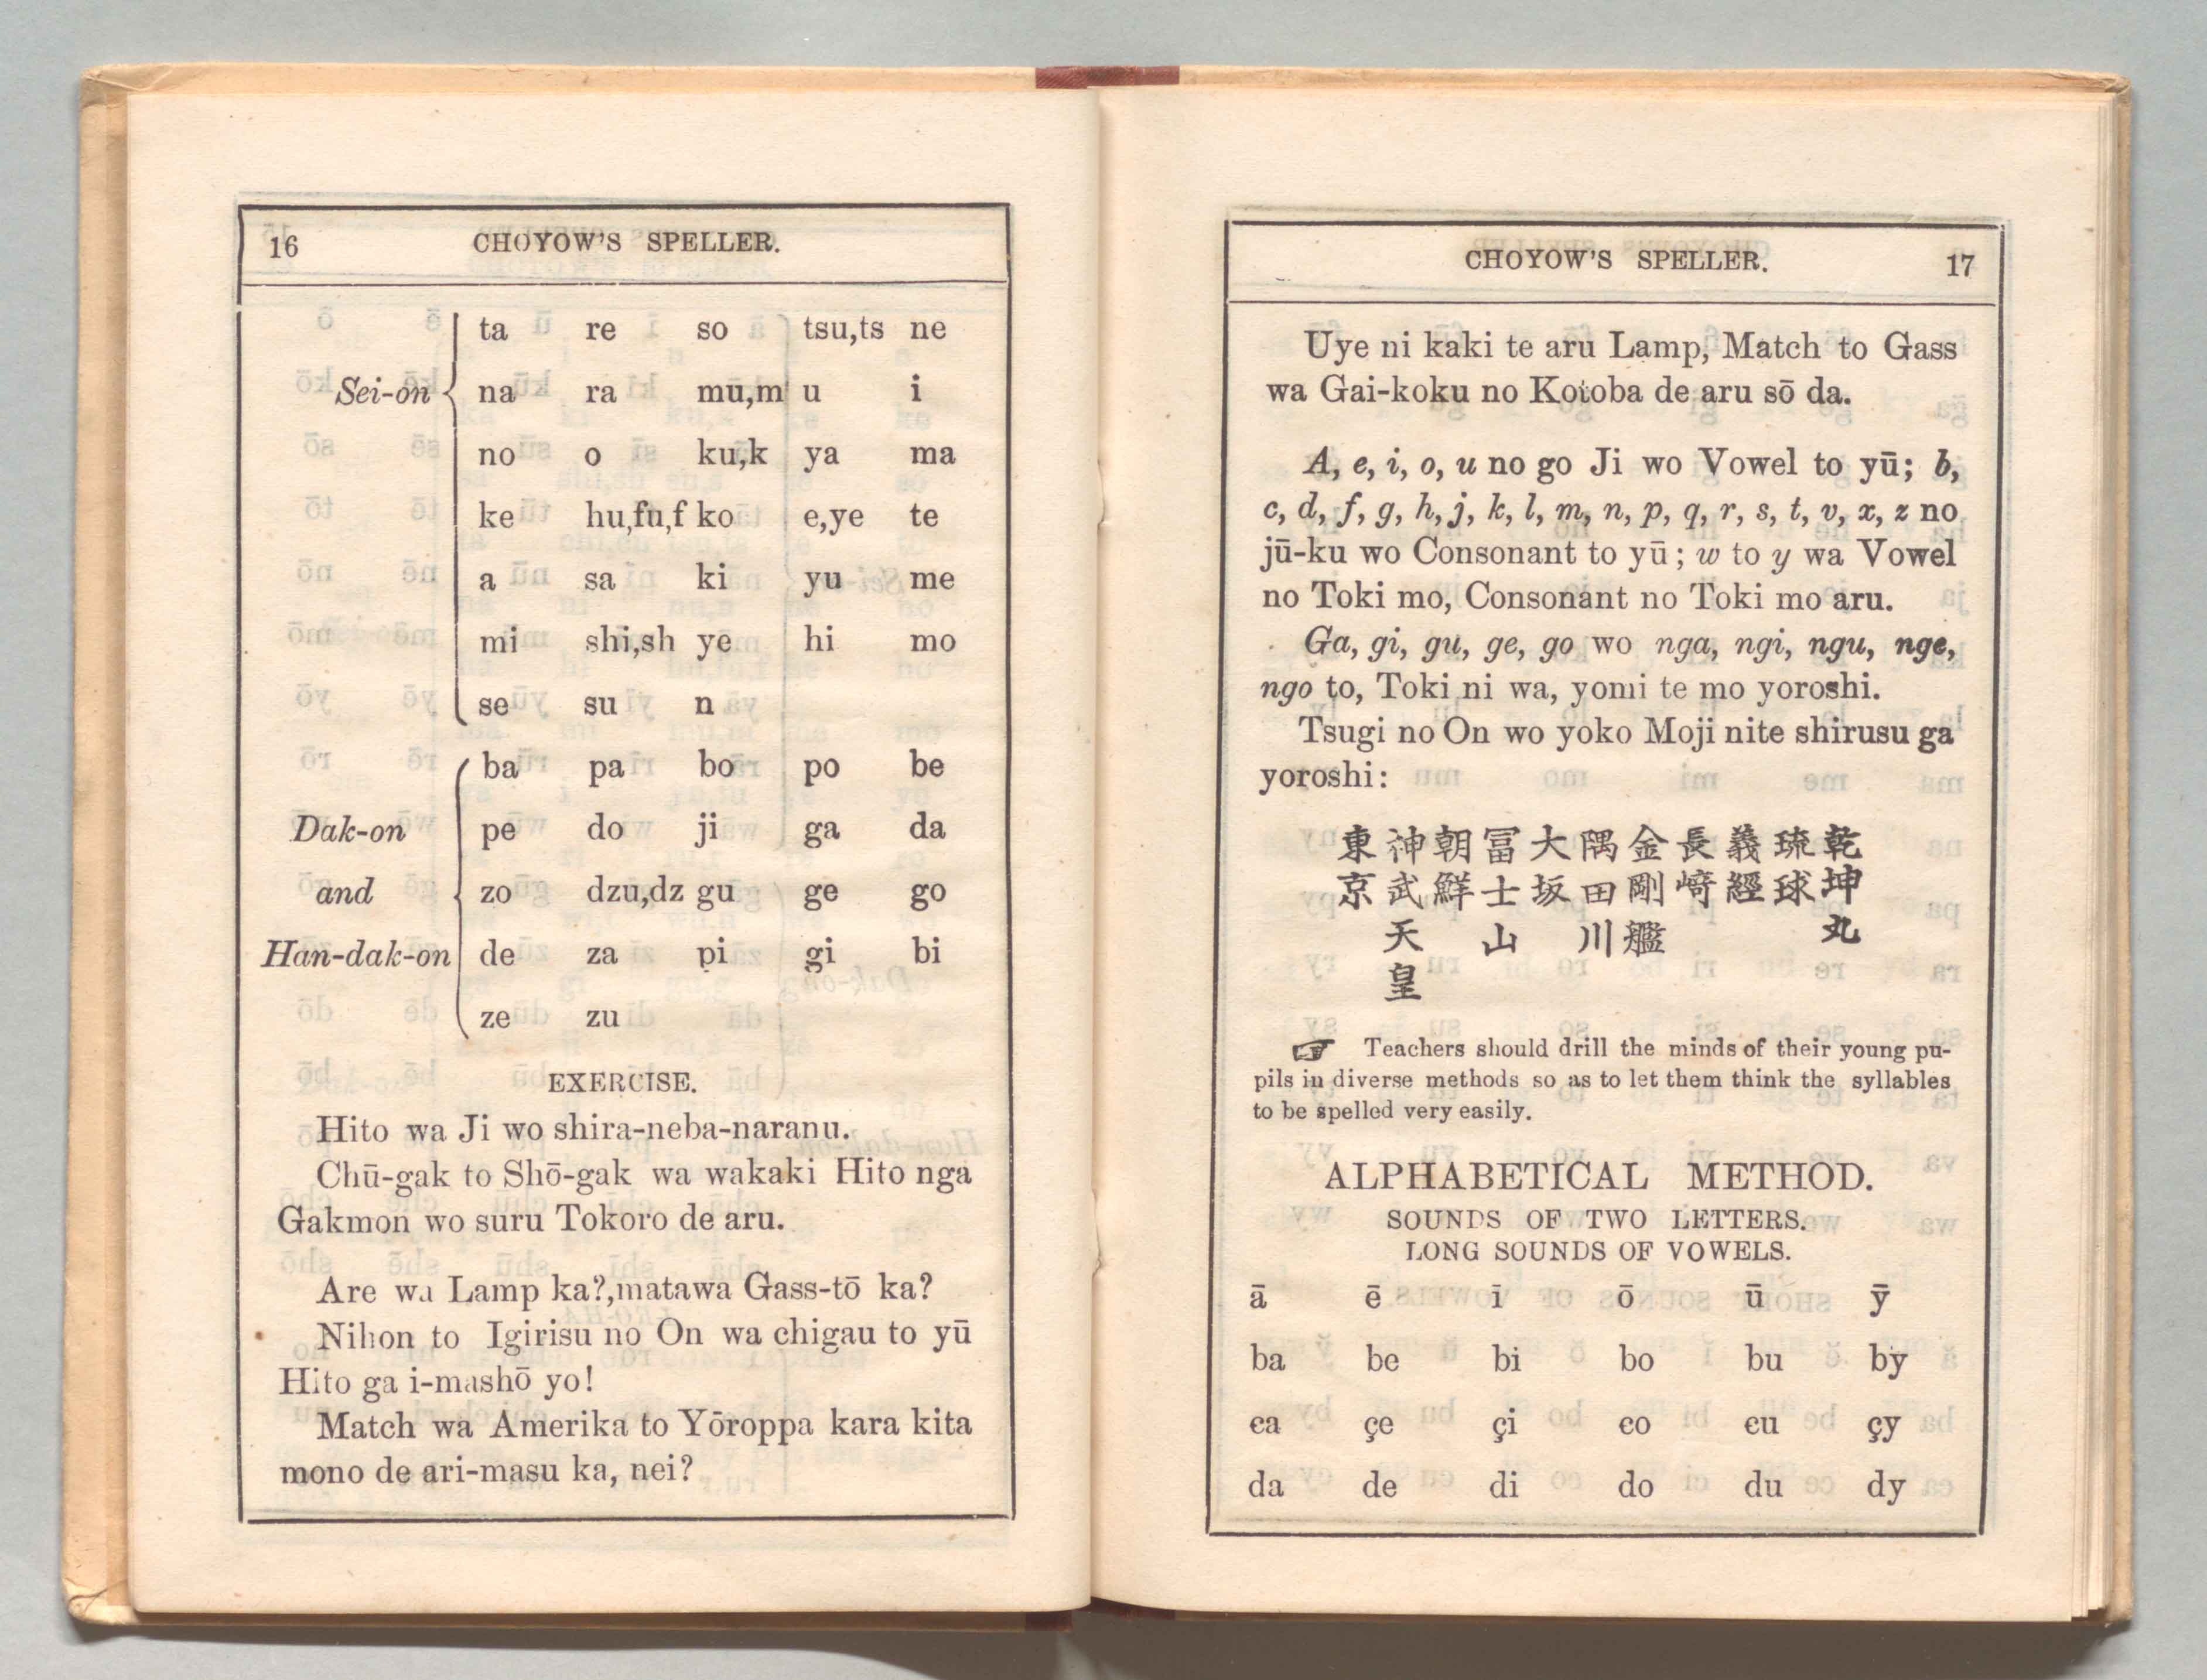 16 CHOYOW'S SPELLER.
ta re so tsu,ts ne
Sei-on na ra mu,m u i
no o ku,k ya ma
ke hu,fu,f ko e,ye te
a sa ki yu me
mi shi,sh ye hi mo
se su n
ba pa bo po be
Dak-on pe do ji ga da
and zo dzu,dz gu ge go
Han-dak-on de za pi gi bi
ze zu
EXERCISE.
Hito wa Ji wo shira-neba-naranu.
Chū-gak to Shō-gak wa wakaki Hito nga
Gakmon wo suru Tokoro de aru.
Are wa Lamp ka?,matawa Gass-tō ka?
Nihon to Igirisu no On wa chigau to yū
Hito ga i-mashō yo!
Match wa Amerika to Yōroppa kara kita
mono de ari-masu ka, nei?
CHOYOW'S SPELLER. 17
Uye ni kaki te aru Lamp, Match to Gass
wa Gai-koku no Kotoba de aru sō da.
A, e, i, o, u no go Ji wo Vowel to yū; b,
c, d, f, g, h, j, k, l, m, n, p, q, r, s, t, v, x, z no
jū-ku wo Consonant to yū; w to y wa Vowel
no Toki mo, Consonant no Toki mo aru.
Ga, gi, gu, ge, go wo nga, ngi, ngu, nge,
ngo to, Toki ni wa, yomi te mo yoroshi.
Tsugi no On wo yoko Moji nite shirusu ga
yoroshi:
乾坤丸
琉球
義經
長崎
金剛艦
隅田川
大坂
冨士山
朝鮮
神武天皇
東京
☞ Teachers should drill the minds of their young pu-
pils in diverse methods so as to let them think the syllables
to be spelled very easily.
ALPHABETICAL METHOD.
SOUNDS OF TWO LETTERS.
LONG SOUNDS OF VOWELS.
ā ē ī ō ū ȳ
ba be bi bo bu by
ca çe çi co cu çy
da de di do du dy